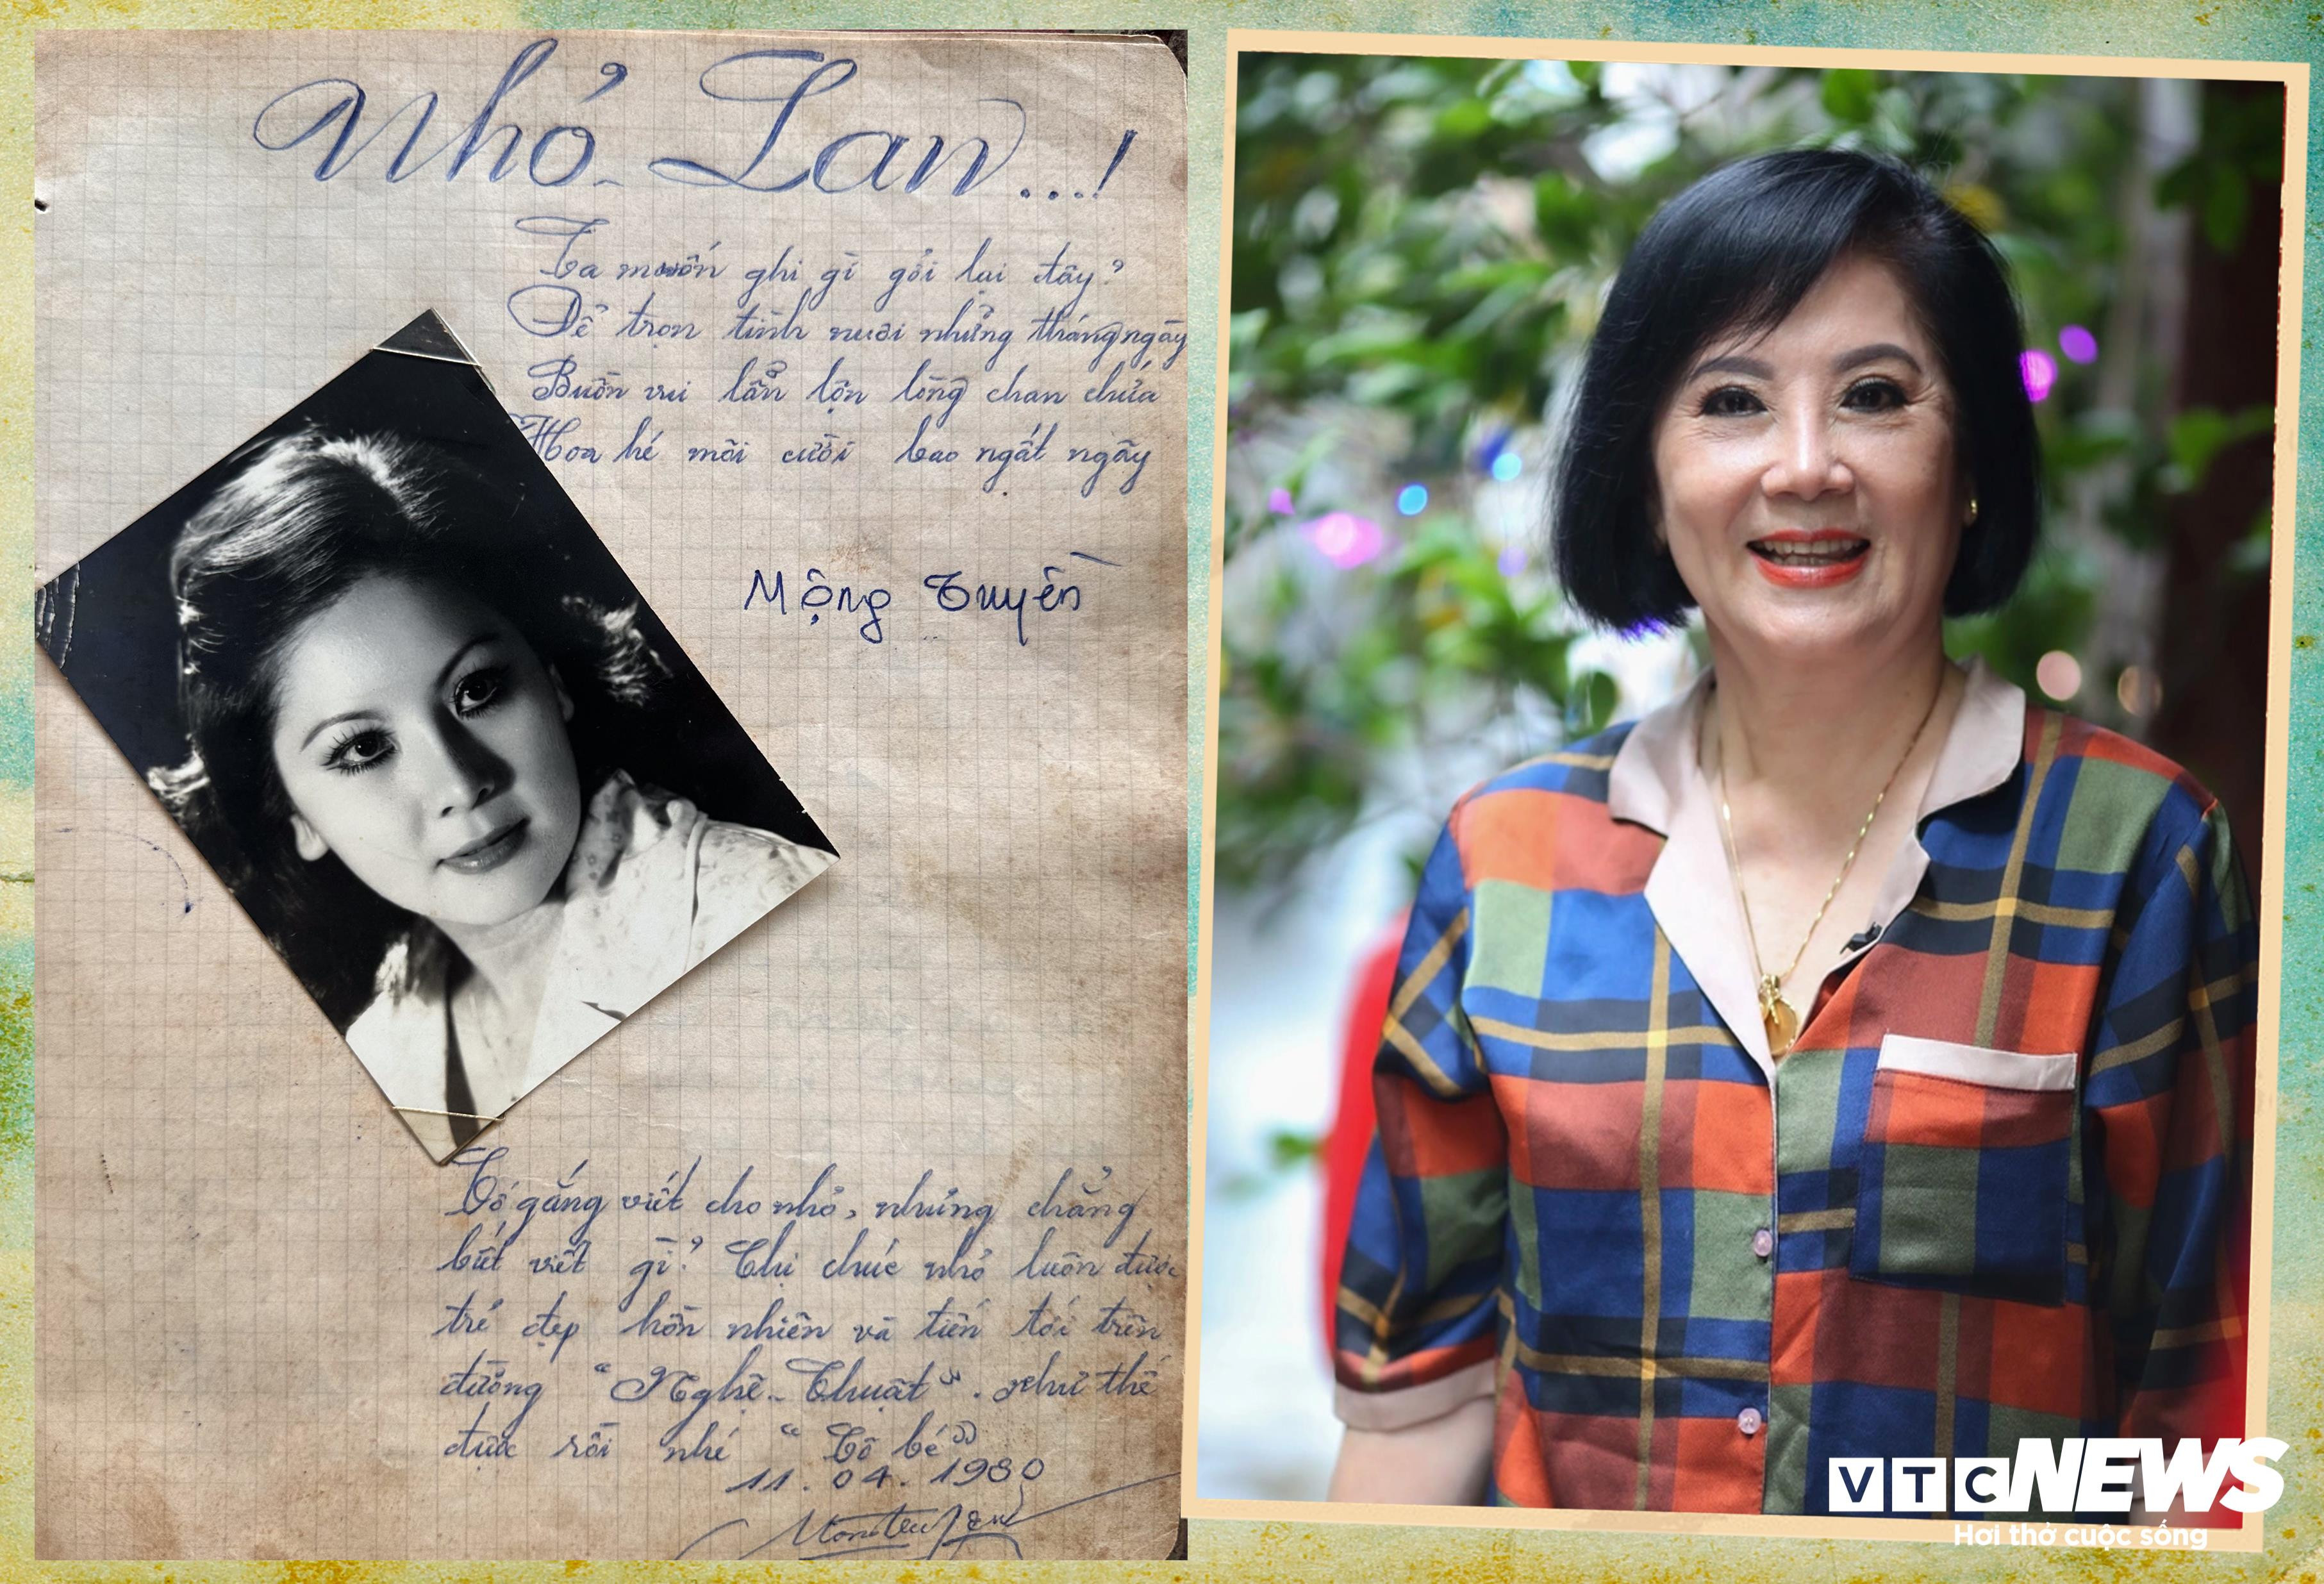 Nhỏ Lan...!
Ta muốn ghi gì gởi lại đây?
Để trọn tình nuôi những tháng ngày
Buồn vui lẫn lộn lòng chan chứa
Hoa hé môi cười bao ngất ngây
Mộng Tuyền
Cố gắng viết cho nhỏ, nhưng chẳng
biết viết gì? Chị chúc nhỏ luôn được
trẻ đẹp hồn nhiên và tiến tới trên
đường "Nghệ-Thuật". Như thế
được rồi nhé "Cô bé"
11.04.1980
VTC NEWS
Hơi thở cuộc sống